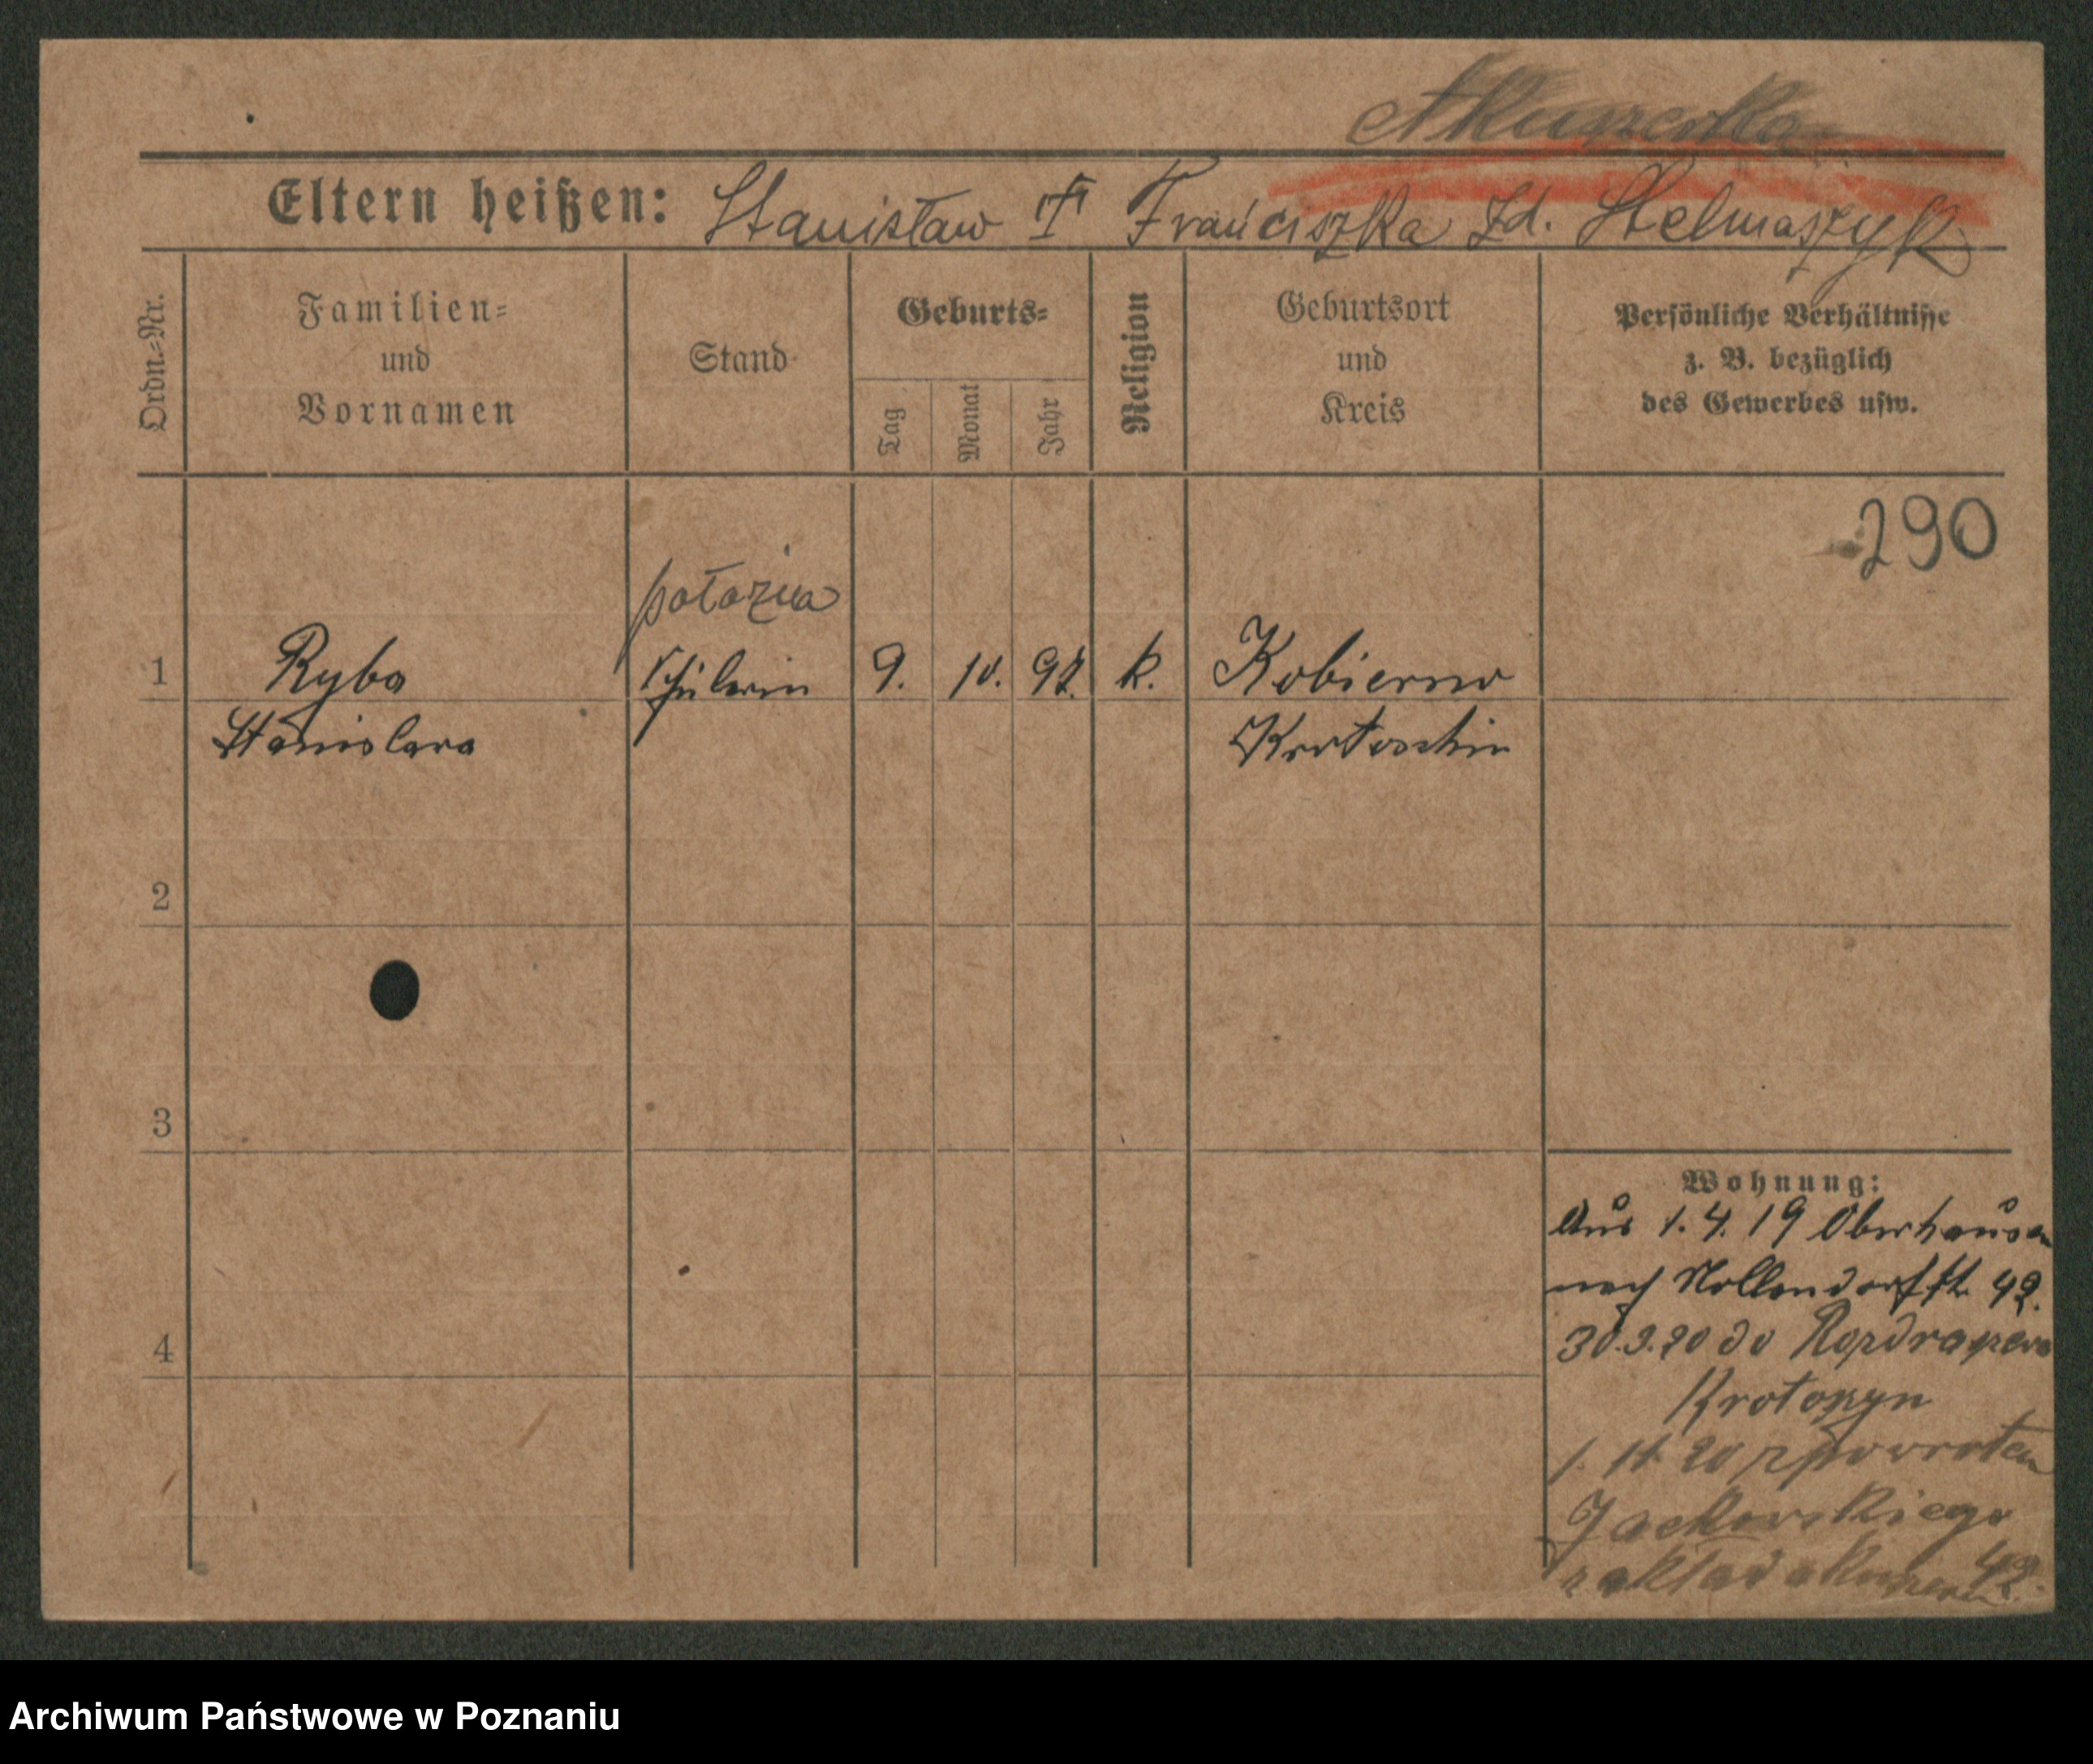 Akuszerka
Eltern heißen: Stanisław † Franciszka zd. Stelmaszyk
Ordn.-Nr.
Familien-
und
Vornamen
Stand
Geburts-
Tag
Monat
Jahr
Religion
Geburtsort
und
Kreis
Persönliche Verhältnisse
z. B. bezüglich
des Gewerbes usw.
290
położna
1 Ryba Schülerin 9. 10. 92. k. Kobierno
Stanislawa Krotoschin
2
3
Wohnung:
Aus 1.4.19 Oberhausen
nach Nollendorffstr 42.
30.3.20 do Rozdrażewo
4
Krotoszyn
1. 11. 20 z powrotem
Jackowskiego
42.
zakład
Archiwum Państwowe w Poznaniu